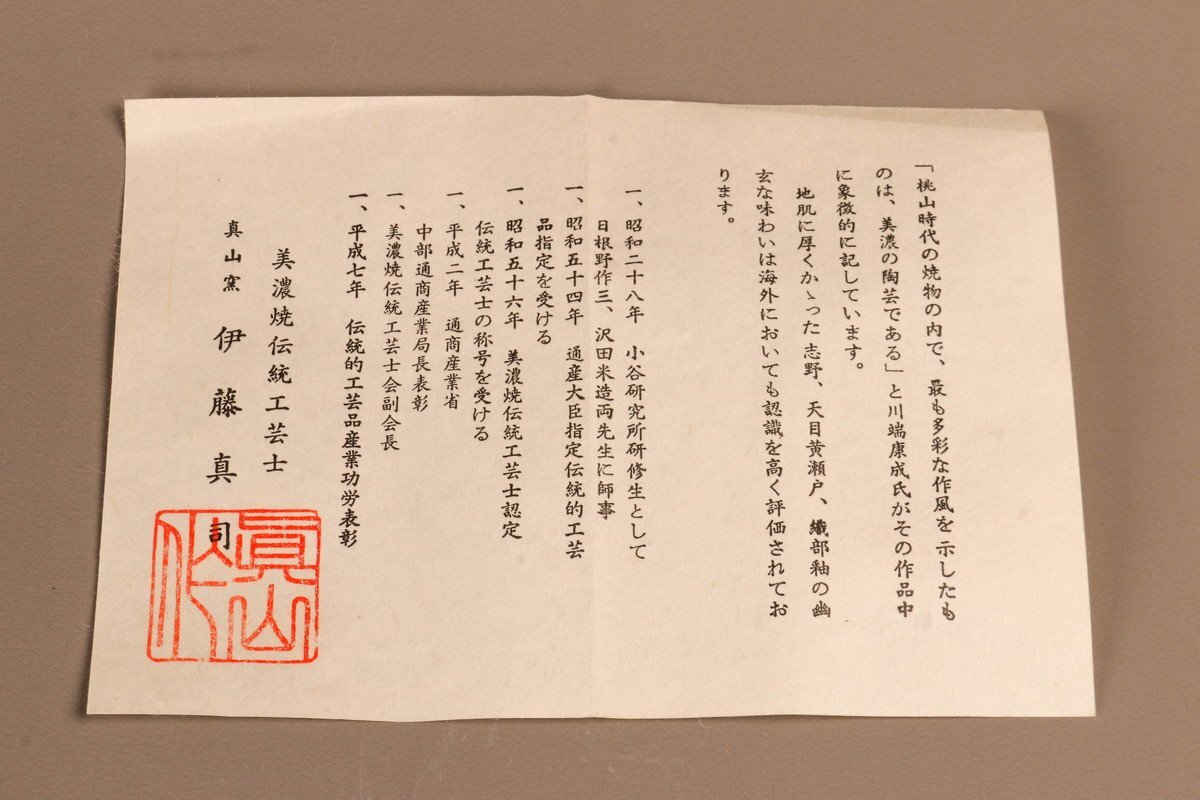 「桃山時代の焼物の内で、最も多彩な作風を示したも
のは、美濃の陶芸である」と川端康成氏がその作品中
に象徴的に記しています。
地肌に厚くかゝった志野、天目黄瀬戸、織部釉の幽
玄な味わいは海外においても認識を高く評価されてお
ります。
一、昭和二十八年 小谷研究所研修生として
日根野作三、沢田米造両先生に師事
一、昭和五十四年 通産大臣指定伝統的工芸
品指定を受ける
一、昭和五十六年 美濃焼伝統工芸士認定
伝統工芸士の称号を受ける
一、平成二年 通商産業省
中部通商産業局長表彰
一、美濃焼伝統工芸士会副会長
一、平成七年 伝統的工芸品産業功労表彰
美濃焼伝統工芸士
真山窯 伊藤真司
眞山
作